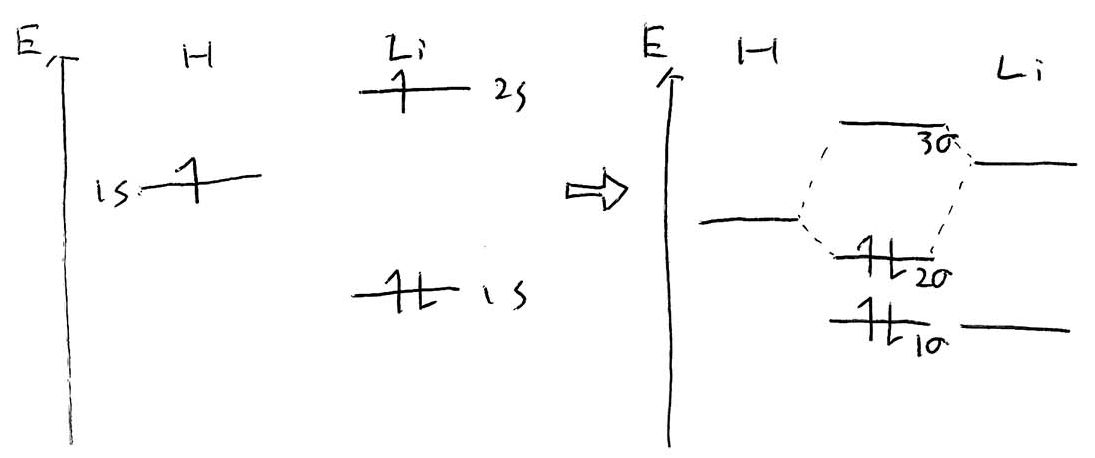 E H Li
2s
1s
1s
E H Li
3σ
2σ
1σ